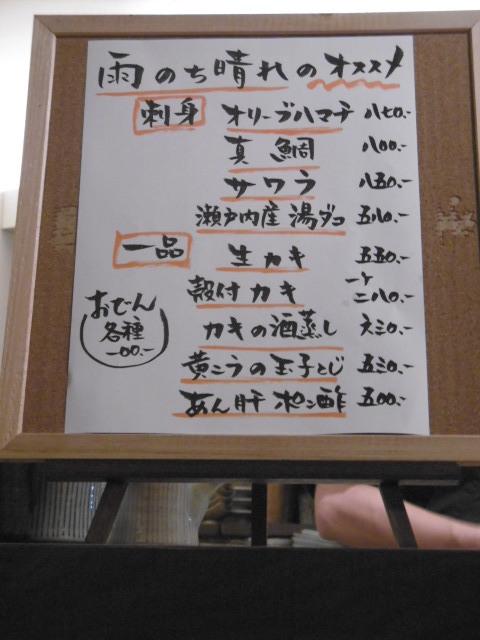 雨のち晴れのオススメ
刺身 オリーブハマチ 八七〇.-
真鯛 八〇〇.-
サワラ 八五〇.-
瀬戸内産 湯ダコ 五八〇.-
一品 生カキ 五五〇.-
殻付カキ 一ケ 二八〇.-
カキの酒蒸し 六三〇.-
黄ニラの玉子とじ 五三〇.-
あん肝 ポン酢 五〇〇.-
おでん
各種
一〇〇.-